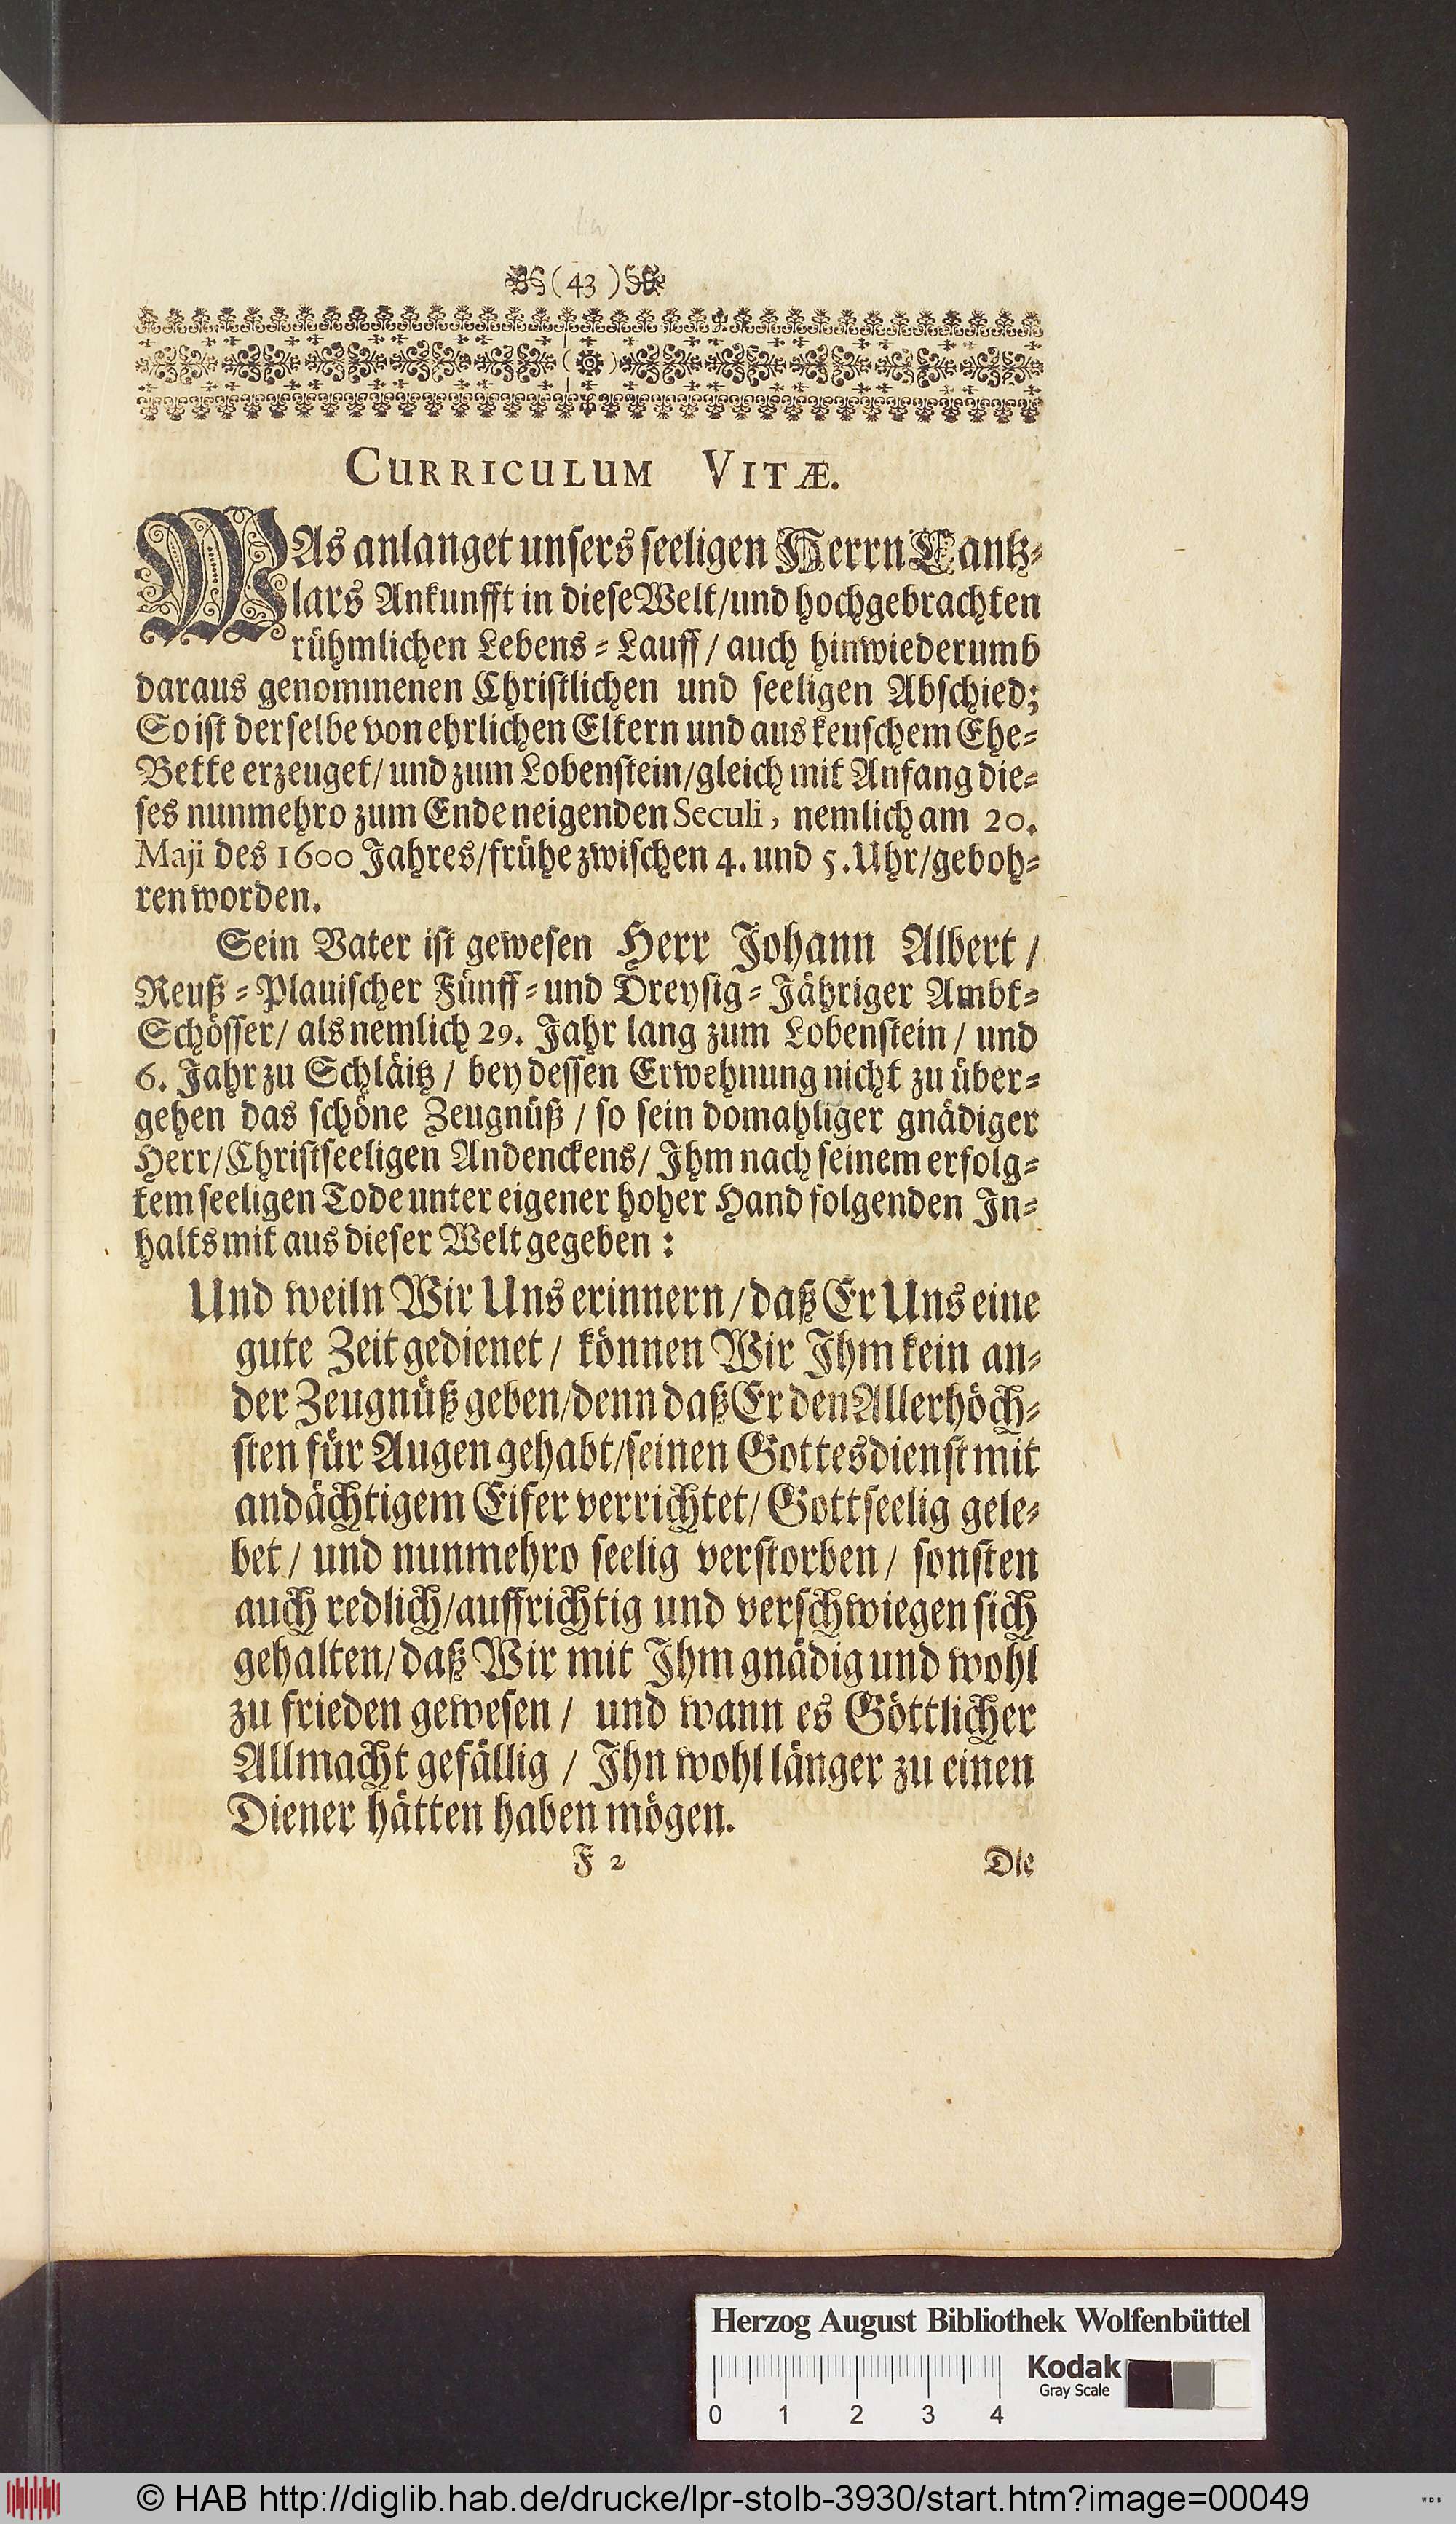 (43)
CURRICULUM VITÆ.
WAs anlanget unsers seeligen Herrn Cantz-
lars Ankunfft in diese Welt/und hochgebrachten
rühmlichen Lebens-Lauff/ auch hinwiederumb
daraus genommenen Christlichen und seeligen Abschied;
So ist derselbe von ehrlichen Eltern und aus keuschem Ehe-
Bette erzeuget/ und zum Lobenstein/gleich mit Anfang die-
ses nunmehro zum Ende neigenden Seculi, nemlich am 20.
Maji des 1600 Jahres/frühe zwischen 4. und 5. Uhr/geboh-
ren worden.
Sein Vater ist gewesen Herr Johann Albert/
Reuß-Plauischer Fünff-und Dreysig-Jähriger Ambt-
Schösser/ als nemlich 29. Jahr lang zum Lobenstein/ und
6. Jahr zu Schläitz/ bey dessen Erwehnung nicht zu über-
gehen das schöne Zeugnüß/ so sein domahliger gnädiger
Herr/Christseeligen Andenckens/ Ihm nach seinem erfolg-
tem seeligen Tode unter eigener hoher Hand folgenden In-
halts mit aus dieser Welt gegeben:
Und weiln Wir Uns erinnern/daß Er Uns eine
gute Zeit gedienet/ können Wir Ihm kein an-
der Zeugnüß geben/denn daß Er den Allerhöch-
sten für Augen gehabt/seinen Gottesdienst mit
andächtigem Eifer verrichtet/ Gottseelig gele-
bet/ und nunmehro seelig verstorben/ sonsten
auch redlich/auffrichtig und verschwiegen sich
gehalten/daß Wir mit Ihm gnädig und wohl
zu frieden gewesen/ und wann es Göttlicher
Allmacht gefällig/ Ihn wohl länger zu einen
Diener hätten haben mögen.
F 2
Die
Herzog August Bibliothek Wolfenbüttel
Kodak
Gray Scale
0 1 2 3 4
© HAB http://diglib.hab.de/drucke/lpr-stolb-3930/start.htm?image=00049